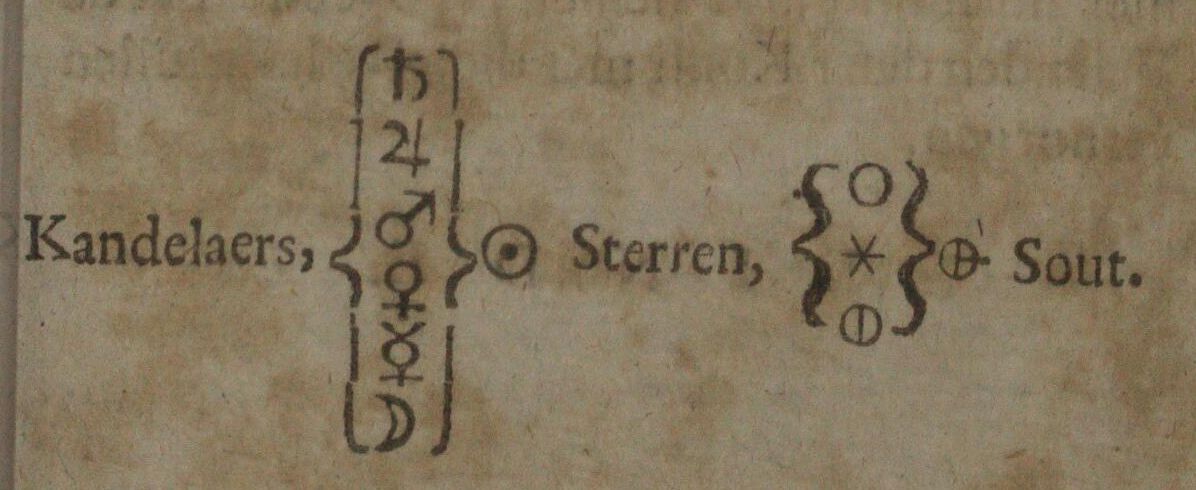 ♄
♃
♂
Kandelaers, { ♀ } ☉ Sterren, { 🞅 * ⦶ } 🜨 Sout.
☿
☽